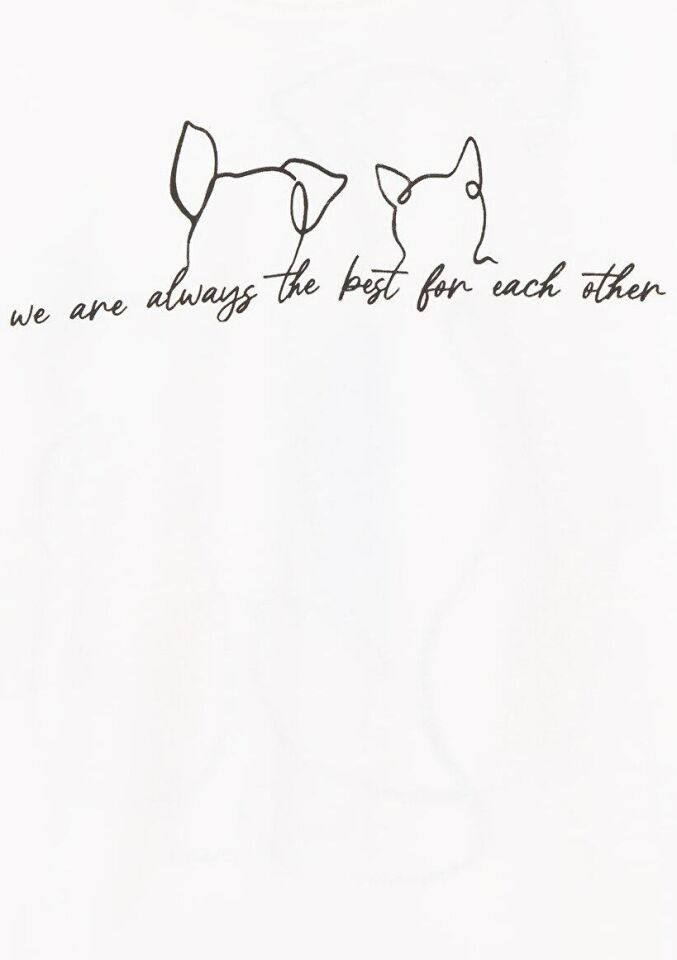 we are always the best for each other